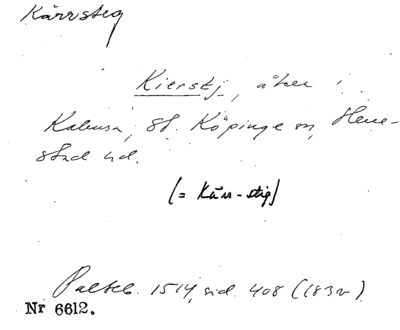 Kärrsteg
Kierstj, åker i
Kabusa, St. Köpinge sn, Herre-
stad hd.
(= Kärr-stig)
Palteb. 1514, sid. 408 (183v)
Nr 6612.